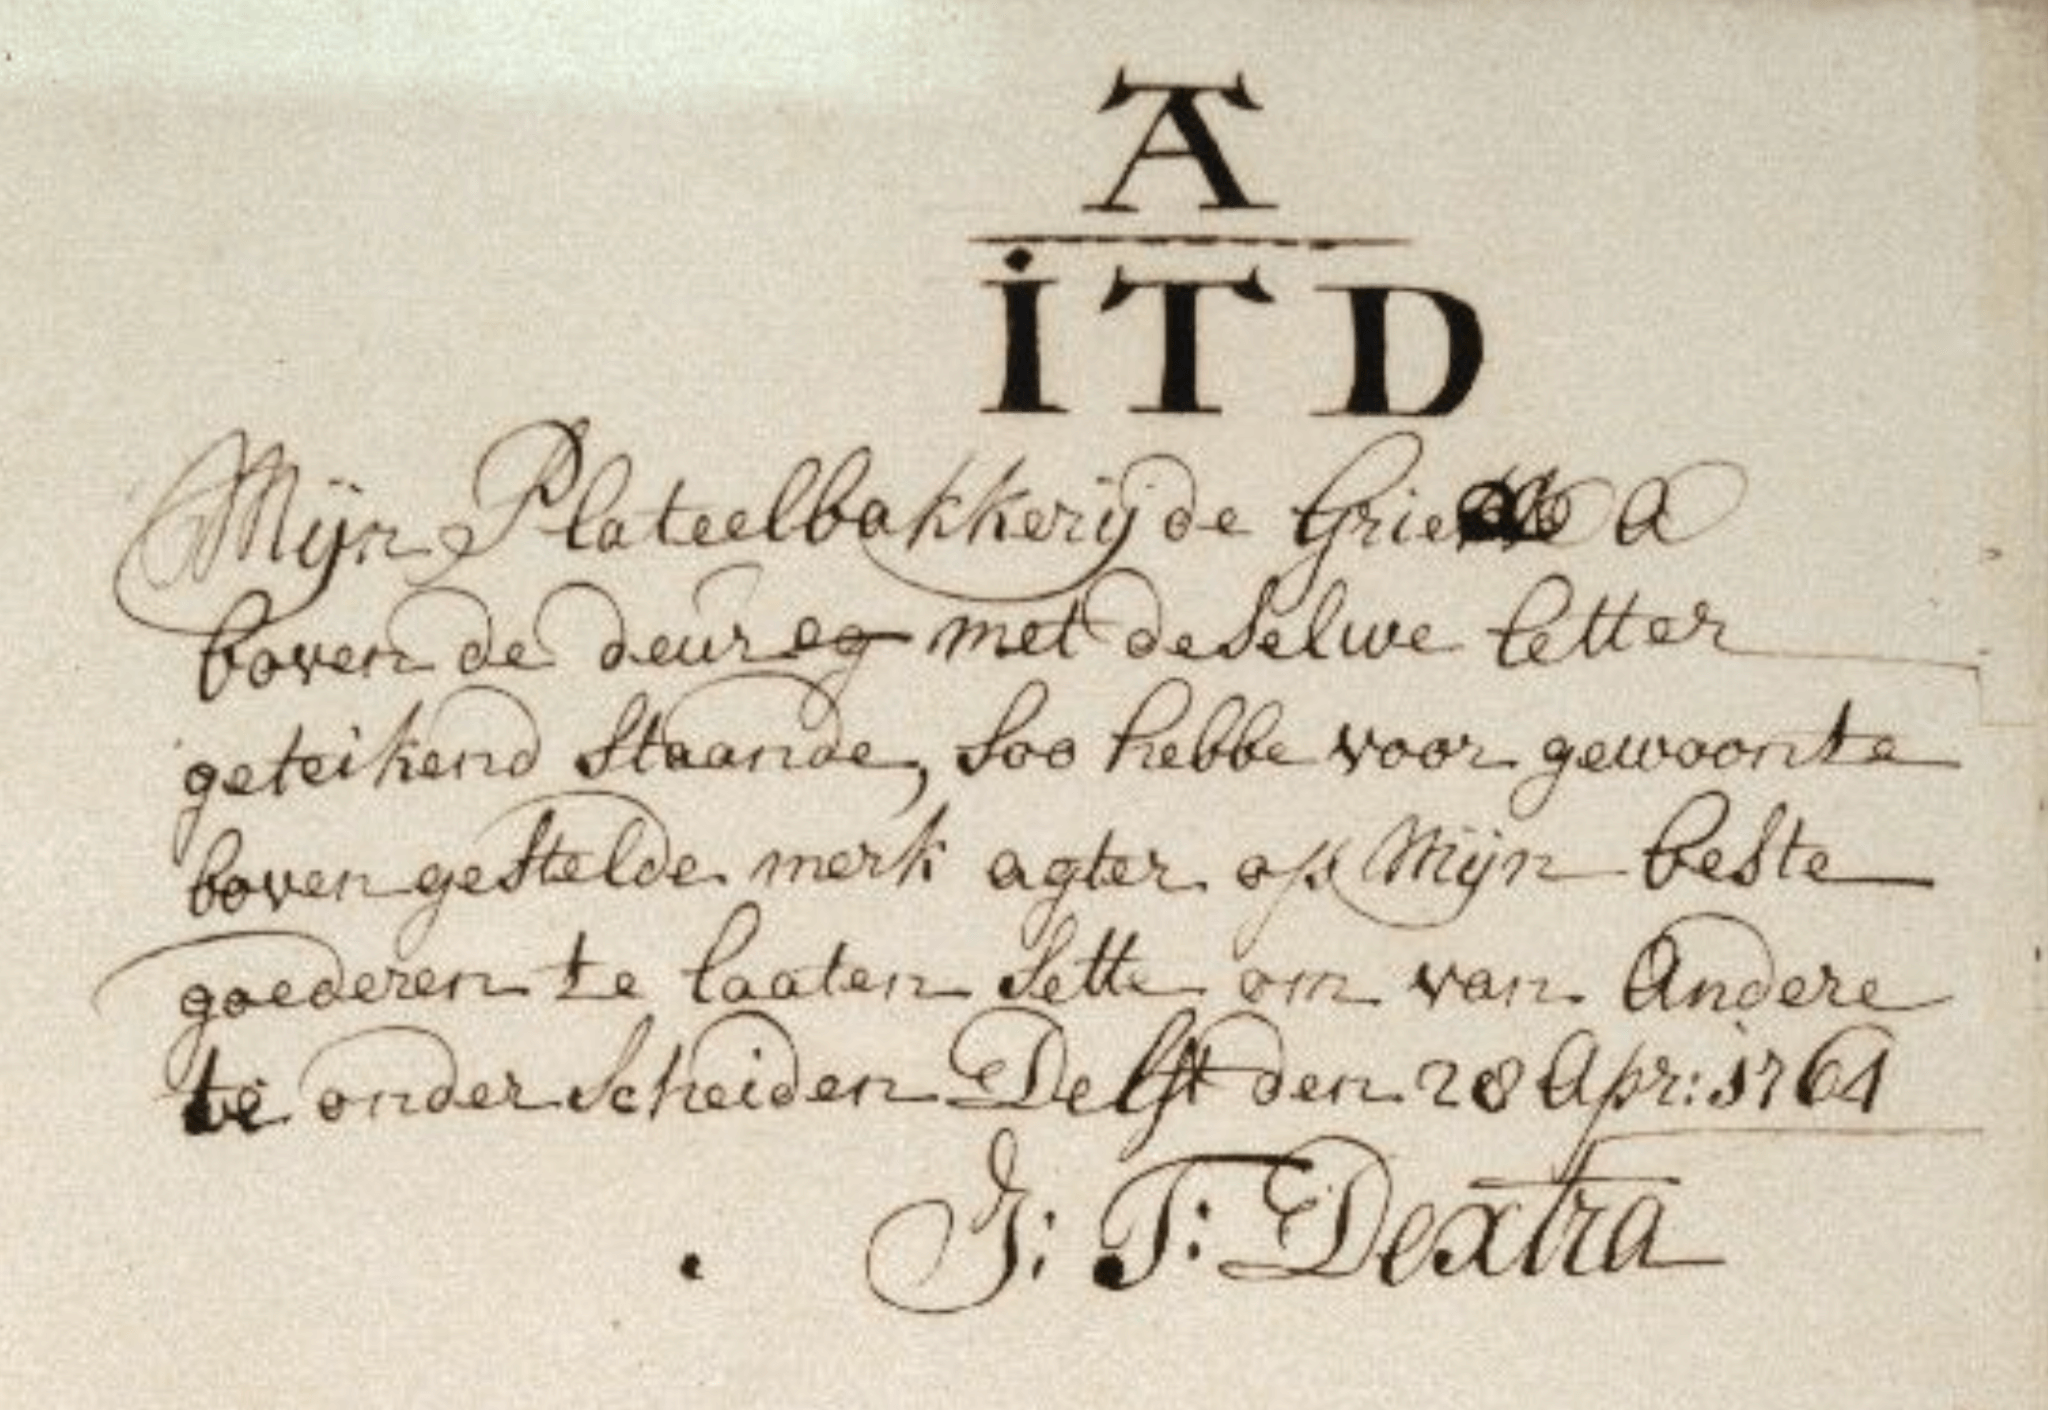 A
i T D
Mijn Plateelbakkerij de A
boven de deur met deselve letter
geteikend staande, soo hebbe voor gewoonte
boven gestelde merk agter op Mijn beste
goederen te laaten sette om van Andere
te onderscheiden Delft den 28 Apr: 1764
J: T: Dextra